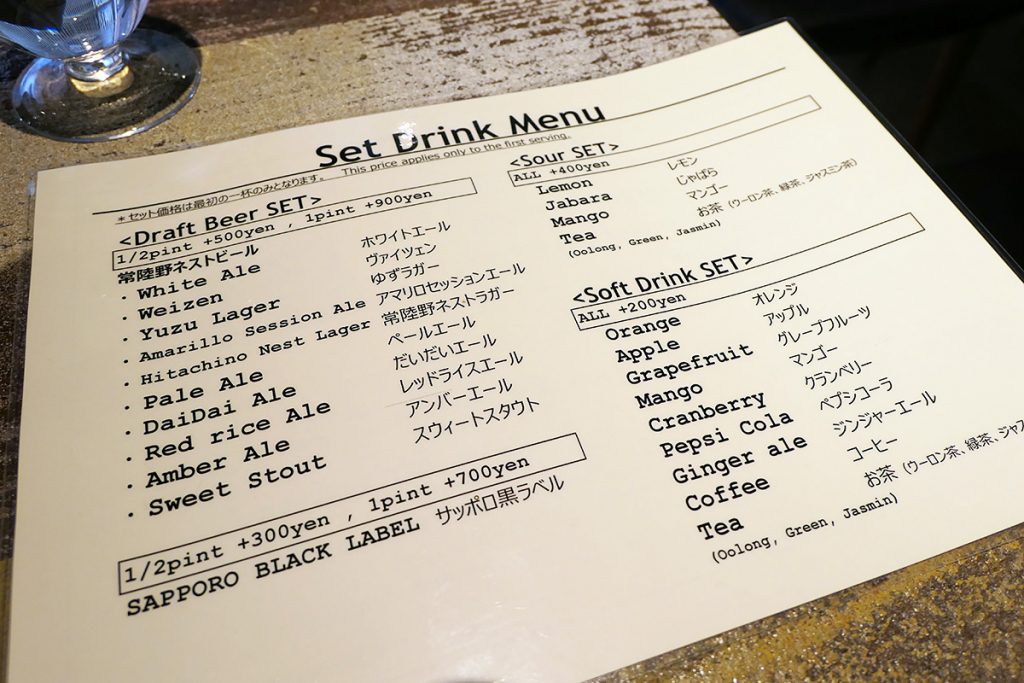 Set Drink Menu
＊セット価格は最初の一杯のみとなります。 This price applies only to the first serving.
<Draft Beer SET>
1/2pint +500yen , 1pint +900yen
常陸野ネストビール
・White Ale ホワイトエール
・Weizen ヴァイツェン
・Yuzu Lager ゆずラガー
・Amarillo Session Ale アマリロセッションエール
・Hitachino Nest Lager 常陸野ネストラガー
・Pale Ale ペールエール
・DaiDai Ale だいだいエール
・Red rice Ale レッドライスエール
・Amber Ale アンバーエール
・Sweet Stout スウィートスタウト
1/2pint +300yen , 1pint +700yen
SAPPORO BLACK LABEL サッポロ黒ラベル
<Sour SET>
ALL +400yen
Lemon レモン
Jabara じゃばら
Mango マンゴー
Tea お茶 (ウーロン茶、緑茶、ジャスミン茶)
(Oolong, Green, Jasmin)
<Soft Drink SET>
ALL +200yen
Orange オレンジ
Apple アップル
Grapefruit グレープフルーツ
Mango マンゴー
Cranberry クランベリー
Pepsi Cola ペプシコーラ
Ginger ale ジンジャーエール
Coffee コーヒー
Tea お茶 (ウーロン茶、緑茶、ジャス
(Oolong, Green, Jasmin)